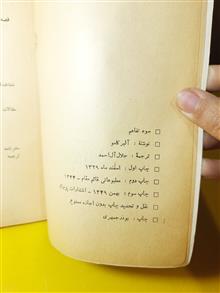 قصه
□ سوء تفاهم
□ نوشتهٔ : آلبر کامو
□ ترجمهٔ : جلال آل‌احمد
□ چاپ اول : اسفند ماه ۱۳۲۹
□ چاپ دوم : مطبوعاتی قائم مقام - ۱۳۳۴
□ چاپ سوم : بهمن ۱۳۴۹ - انتشارات
□ نقل و تجدید چاپ بدون اجازه ممنوع
□ چاپ : بوذرجمهری